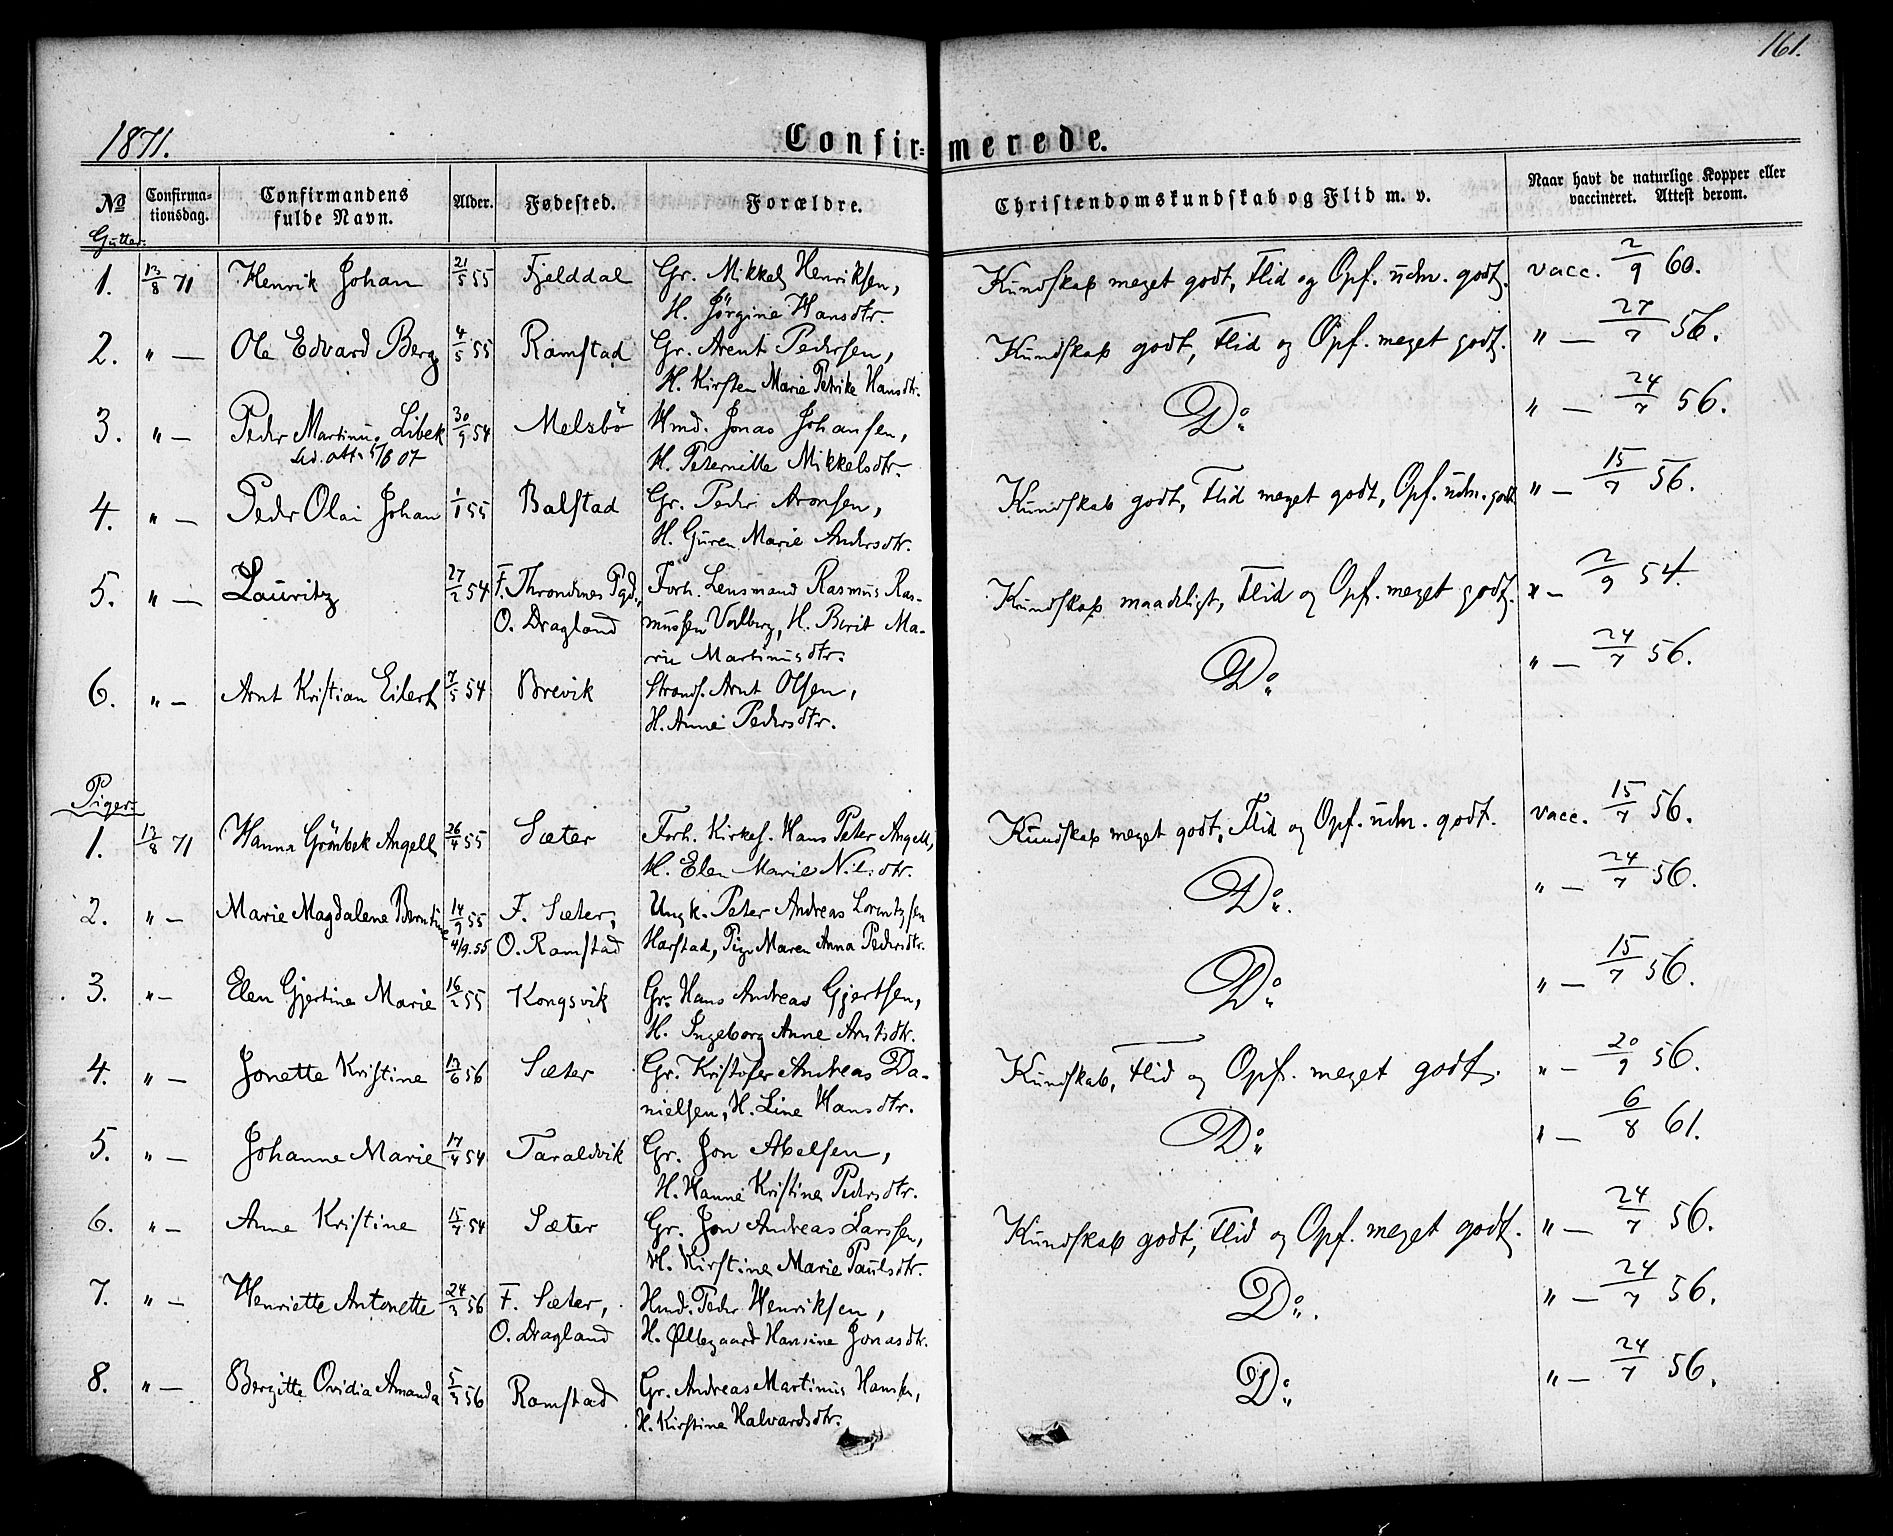 161.
1871.
Confirmerede.
No
Confirmationsdag.
Confirmandens fulde Navn.
Alder.
Fødested.
Forældre.
Christendomskundskab og Flid m. v.
Naar havt de naturlige Kopper eller vaccineret. Attest derom.
Gutter:
1. 13/8 71 Henrik Johan 21/5 55 Fjelddal Gr. Mikkel Henriksen, Kundskab meget godt, Flid og Opf. udm. godt. vacc. 2/9 60.
H. Jørgine Hansdtr.
2. " — Ole Edvard Berg 4/5 55 Ramstad Gr. Arent Pedersen, Kundskab godt, Flid og Opf. meget godt. " — 27/7 56.
H. Kirsten Marie Petrike Hansdtr.
3. " — Peder Martinus Libek 30/9 54 Melsbö Hmd. Jonas Johansen, Do " — 24/7 56.
led. att. 5/6 07 H. Peternille Mikkelsdtr.
4. " — Peder Olai Johan 1/1 55 Balstad Gr. Peder Aronsen, Kundskab godt, Flid meget godt, Opf. udm. godt " — 15/7 56.
H. Guren Marie Andersdtr.
5. " — Lauritz 27/2 54 F. Throndnes Pgd., Forh. Lensmand Rasmus Ras- Kundskab maadeligt, Flid og Opf. meget godt. " — 2/9 54.
O. Dragland mussen Valberg, H. Berit Ma-
rie Martinusdtr.
6. " — Arnt Kristian Eilert 7/5 54 Brevik Strands. Arnt Olsen, Do " — 24/7 56.
H. Anne Pedersdtr.
Piger:
1. 13/8 71 Hanna Grönbek Angell 26/4 55 Sæter Forh. Kirkes. Hans Peter Angell, Kundskab meget godt, Flid og Opf. udm. godt. vacc. 15/7 56.
H. Elen Marie Nilsdtr.
2. " — Marie Magdalene Berntine 14/9 55 F. Sæter, Ungk. Peter Andreas Lorentzsen Do. " — 24/7 56.
4/9.55 O. Ramstad Harstad, Pige Maren Anna Pedersdtr.
3. " — Elen Gjertine Marie 16/2 55 Kongsvik Gr. Hans Andreas Gjertsen, Do " — 15/7 56.
H. Ingeborg Anne Arntsdtr.
4. " — Jonette Kristine 13/6 56 Sæter Gr. Kristofer Andreas Da- Kundskab, Flid og Opf. meget godt. " — 20/9 56.
nielsen, H. Line Hansdtr.
5. " — Johanne Marie 17/4 54 Taraldvik Gr. Jon Abelsen, Do " — 6/8 61.
H. Hanne Kristine Pedersdtr.
6. " — Anne Kristine 15/7 54 Sæter Gr. Jon Andreas Larssen, Kundskab godt, Flid og Opf. meget godt. " — 24/7 56.
H. Kirstine Marie Paulsdtr.
7. " — Henriette Antonette 24/3 56 F. Sæter, Hmd. Peder Henriksen, Do. " — 24/7 56.
O. Dragland H. Øllegaard Hansine Jonasdtr.
8. " — Bergitte Ovidia Amanda 5/3 56 Ramstad Gr. Andreas Martinus Hansen, Do " — 24/7 56.
H. Kirstine Halvardsdtr.